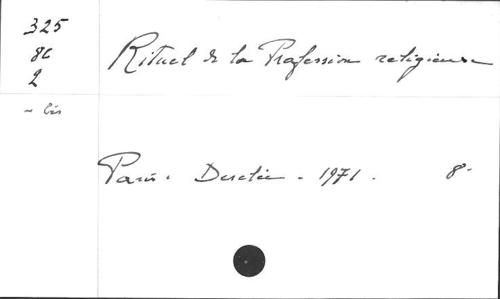 325
8C
2
- bis
Rituel de la Profession religieuse
Paris. Desclée - 1971. 8-